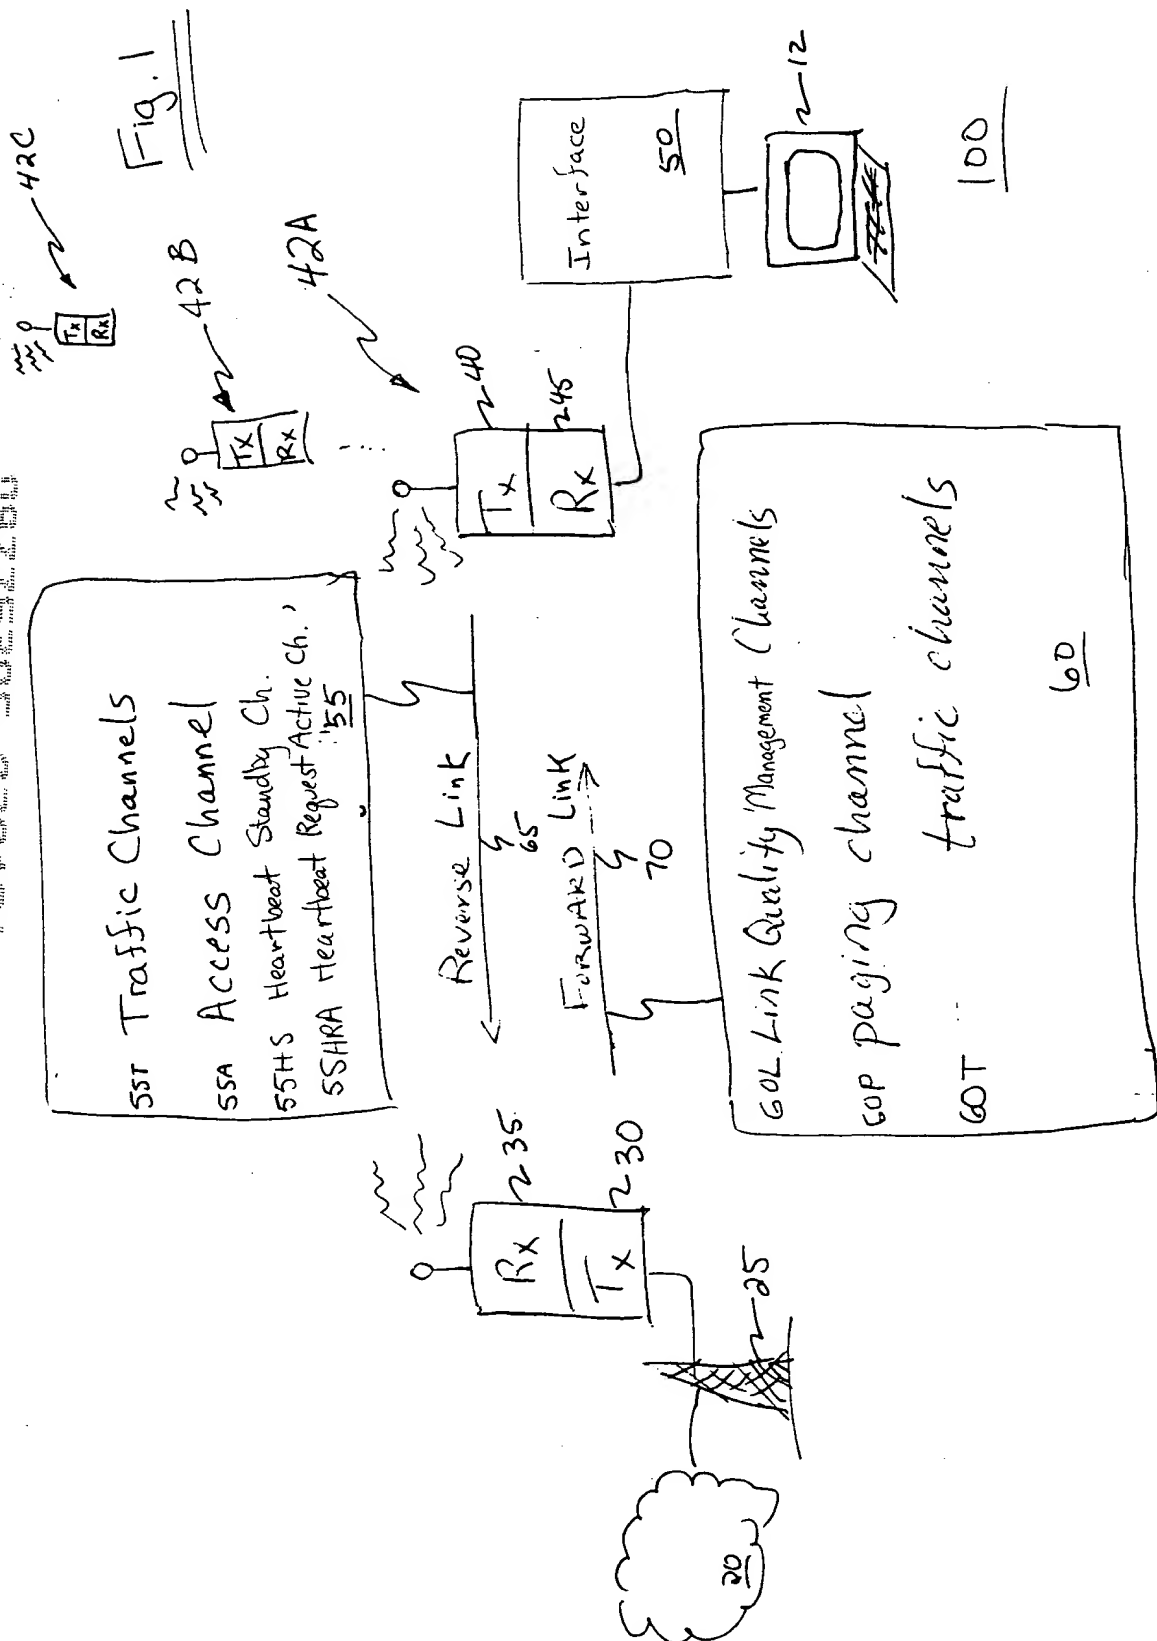 Fig. 1
42C
Tx
Rx
42B
Tx
Rx
42A
40
Tx
45
Rx
Interface
50
12
100
55T Traffic Channels
55A Access Channel
55HS Heartbeat Standby Ch.
55HRA Heartbeat Request Active Ch.
55
Reverse Link
65
FORWARD Link
70
60L Link Quality Management Channels
60P paging channel
60T traffic channels
60
35
Rx
30
Tx
25
20